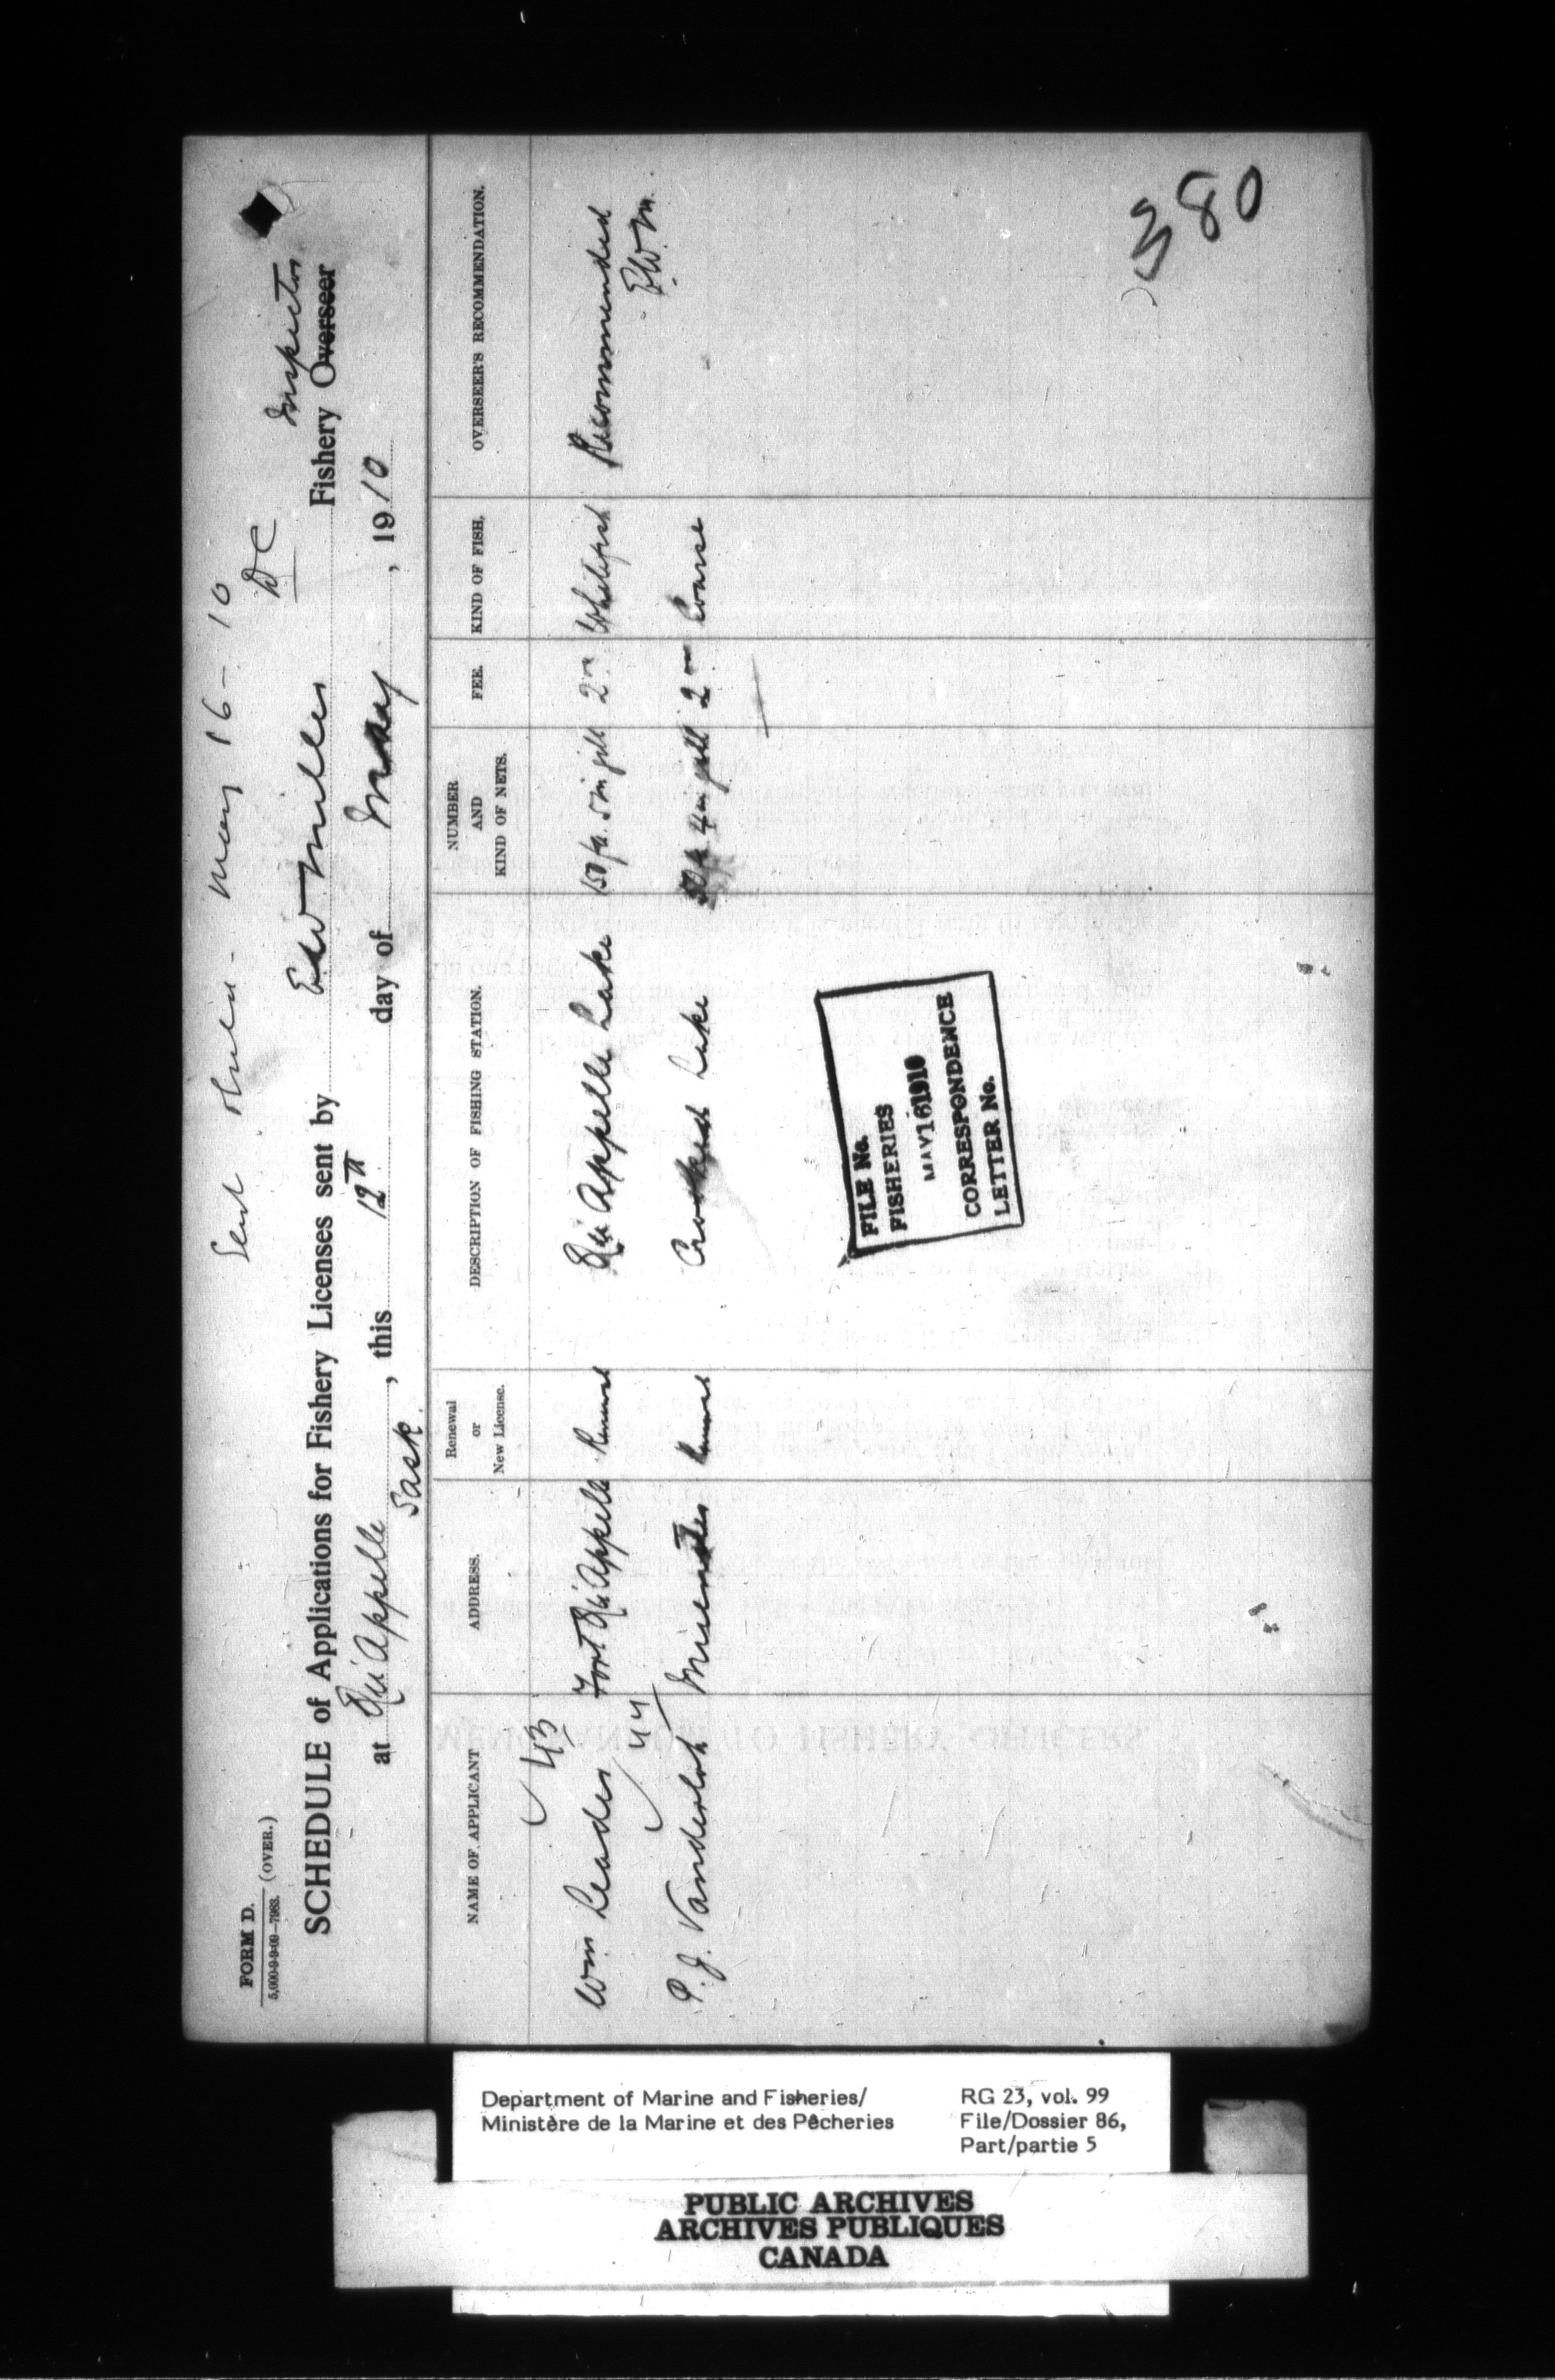 Sent [?] - May 16 - 10
DC
FORM D.
5,000-9-9-09-7983.
(OVER.)
SCHEDULE of Applications for Fishery Licenses sent by EW Miller Fishery Overseer
Inspector
at Qu'Appelle Sask., this 12th day of May, 1910
NAME OF APPLICANT
ADDRESS.
Renewal or New License.
DESCRIPTION OF FISHING STATION.
NUMBER AND KIND OF NETS.
FEE.
KIND OF FISH.
OVERSEER'S RECOMMENDATION.
43
Wm Leader Fort Qu'Appelle Renewal Qu'Appelle Lake 150 fa. 5 in gill 2 00 Whitefish Recommended
EWM.
44
P. J. Vanderloh Muenster Renewal Crooked Lake 50 fa 4 in gill 2 00 Coarse
FILE No.
FISHERIES
MAY 16 1910
CORRESPONDENCE
LETTER No.
380
Department of Marine and Fisheries/
Ministère de la Marine et des Pêcheries
RG 23, vol. 99
File/Dossier 86,
Part/partie 5
PUBLIC ARCHIVES
ARCHIVES PUBLIQUES
CANADA